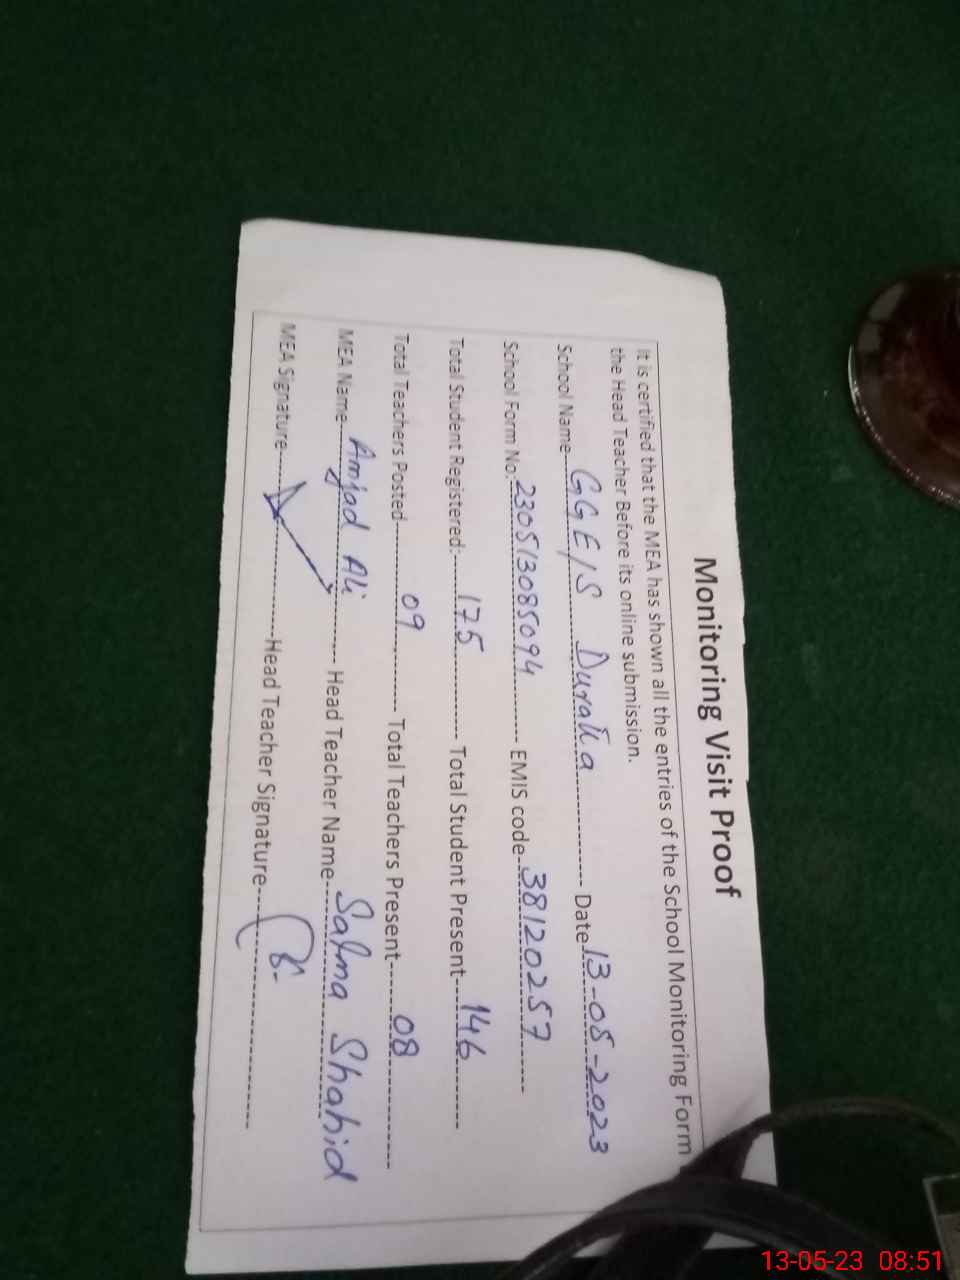 Monitoring Visit Proof
It is certified that the MEA has shown all the entries of the School Monitoring Form
the Head Teacher Before its online submission.
School Name GGE/S Duralla Date 13-05-2023
School Form No: 230513085094 EMIS code 38120257
Total Student Registered: 175 Total Student Present 146
Total Teachers Posted 09 Total Teachers Present 08
MEA Name Amjad Ali Head Teacher Name Salma Shahid
MEA Signature Head Teacher Signature
13-05-23 08:51